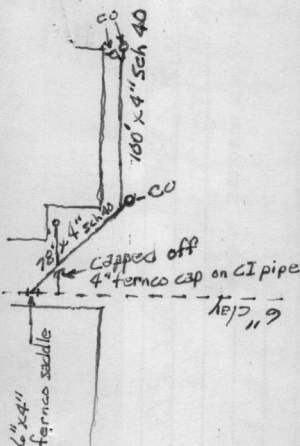 CO
100' x 4" Sch 40
CO
78' x 4" Sch 40
capped off
4" fernco cap on CI pipe
6" clay
6" x 4"
fernco saddle